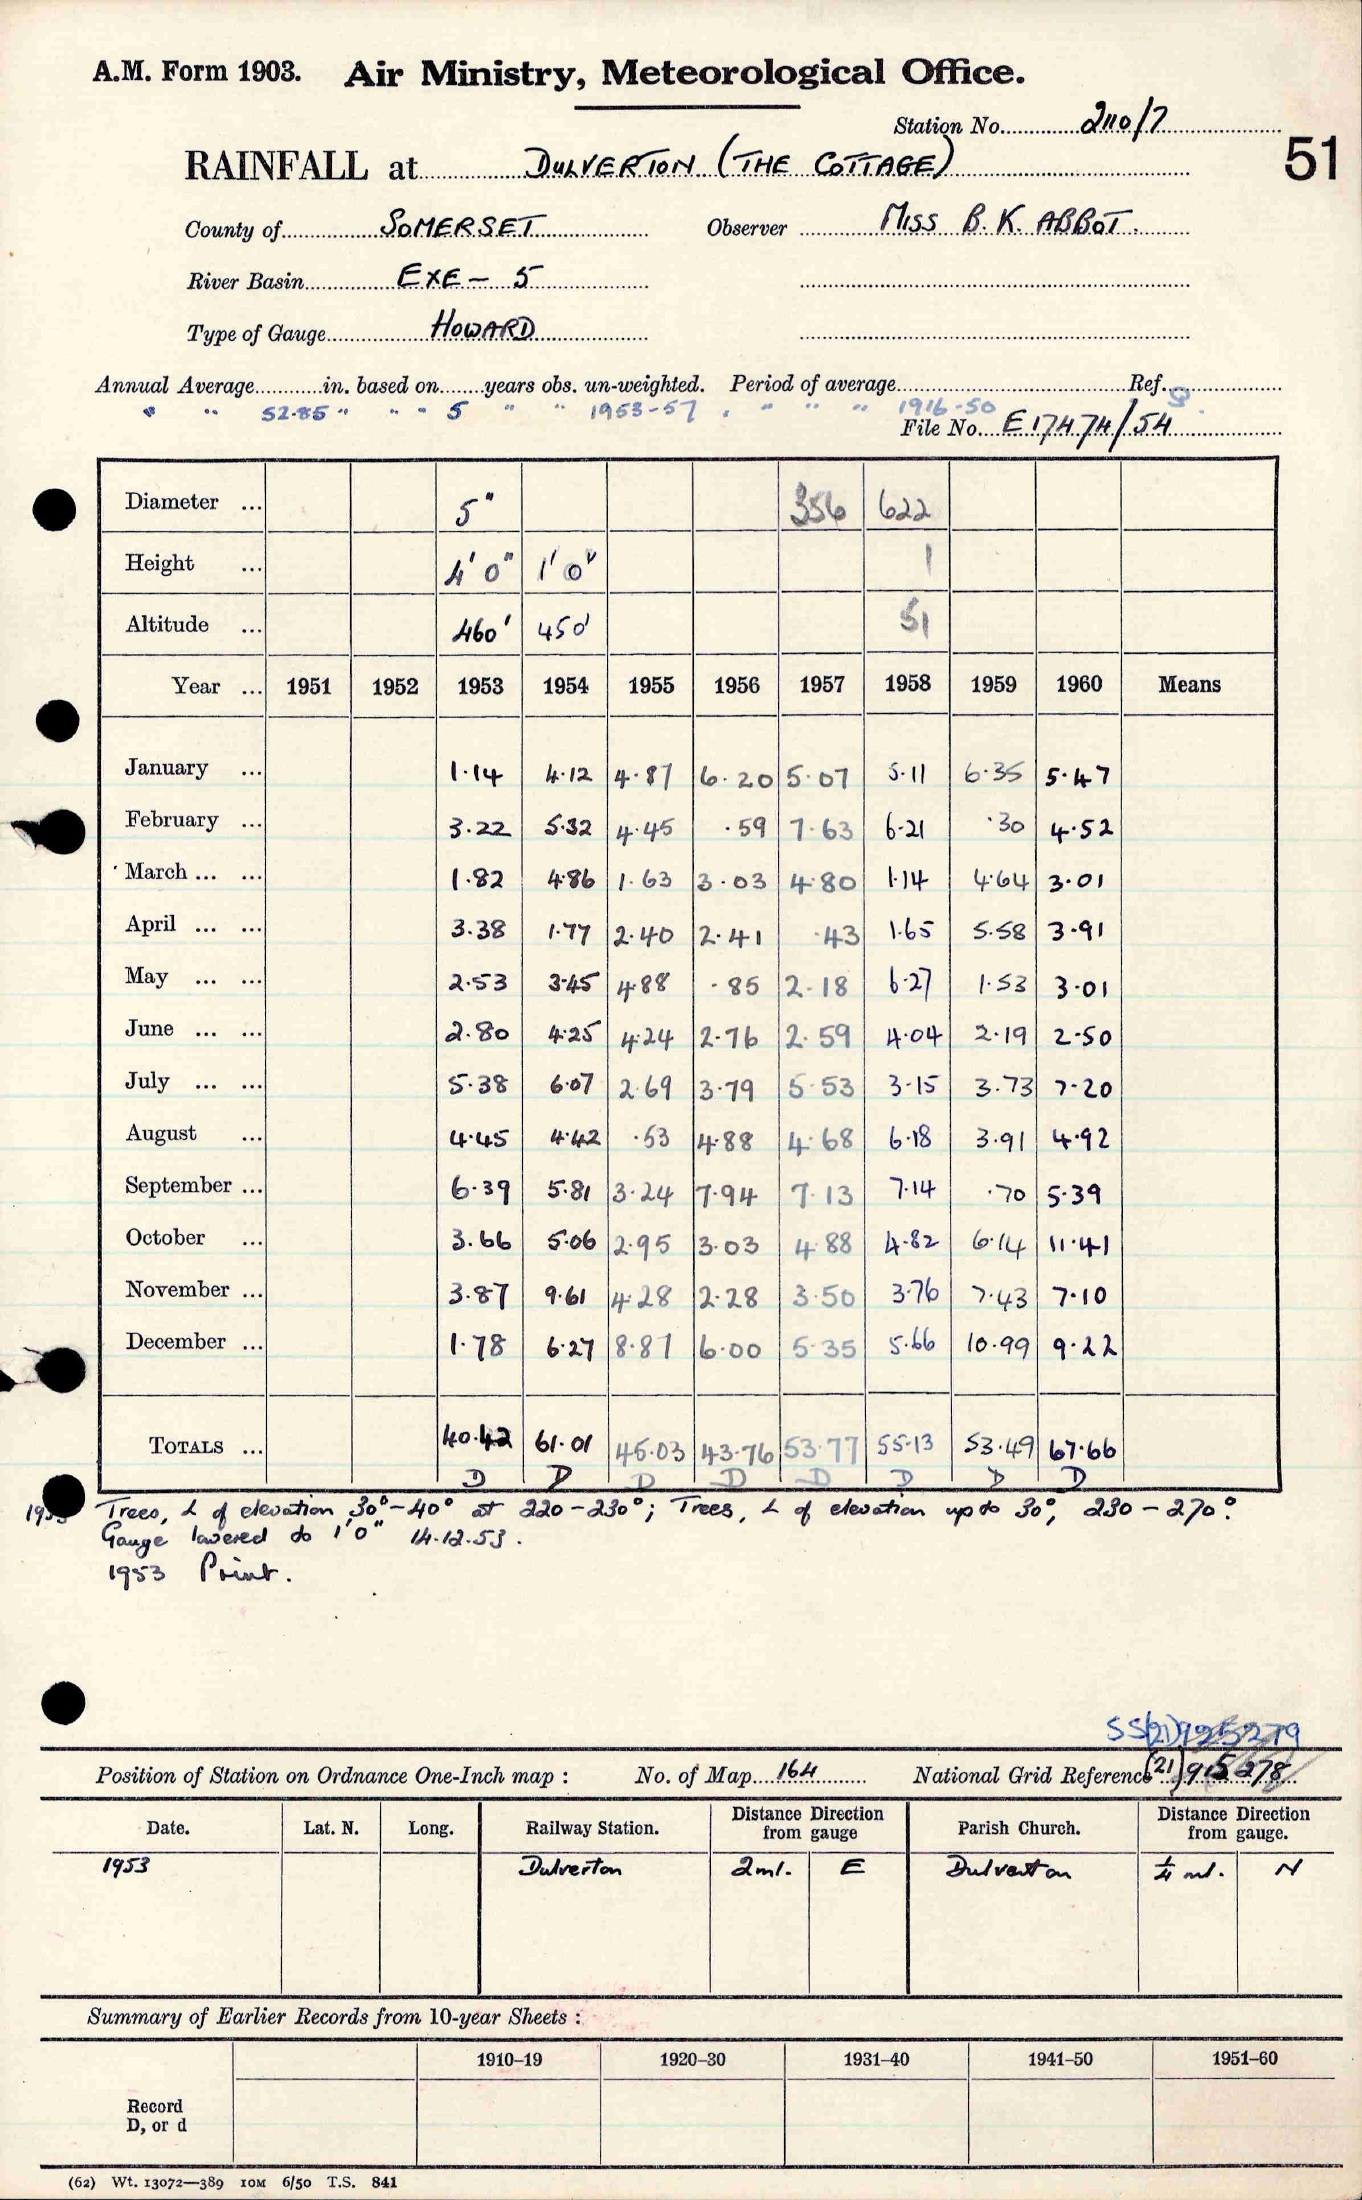 A.M. Form 1903. Air Ministry, Meteorological Office.
Station No. 2110/7
51
RAINFALL at DULVERTON (THE COTTAGE)
County of SOMERSET Observer MISS B. K. ABBOT.
River Basin EXE - 5
Type of Gauge HOWARD
Annual Average in. based on years obs. un-weighted. Period of average Ref.
" " 52.85 " " " 5 " " 1953-57 " " " " 1916-50
File No. E 17474/54
Diameter ... 5" 356 622
Height ... 4' 0" 1' 0" 1
Altitude ... 460' 450' 51
Year ... 1951 1952 1953 1954 1955 1956 1957 1958 1959 1960 Means
January ... 1.14 4.12 4.87 6.20 5.07 5.11 6.35 5.47
February ... 3.22 5.32 4.45 .59 7.63 6.21 .30 4.52
March ... ... 1.82 4.86 1.63 3.03 4.80 1.14 4.64 3.01
April ... ... 3.38 1.77 2.40 2.41 .43 1.65 5.58 3.91
May ... ... 2.53 3.45 4.88 .85 2.18 6.27 1.53 3.01
June ... ... 2.80 4.25 4.24 2.76 2.59 4.04 2.19 2.50
July ... ... 5.38 6.07 2.69 3.79 5.53 3.15 3.73 7.20
August ... 4.45 4.42 .53 4.88 4.68 6.18 3.91 4.92
September ... 6.39 5.81 3.24 7.94 7.13 7.14 .70 5.39
October ... 3.66 5.06 2.95 3.03 4.88 4.82 6.14 11.41
November ... 3.87 9.61 4.28 2.28 3.50 3.76 7.43 7.10
December ... 1.78 6.27 8.87 6.00 5.35 5.66 10.99 9.22
TOTALS ... 40.42 61.01 45.03 43.76 53.77 55.13 53.49 67.66
D D D D D D D D
Trees, L of elevation 30°-40° at 220-230°; Trees, L of elevation up to 30°, 230-270°.
Gauge lowered to 1'0" 14.12.53.
1953 Print.
SS(21)925279
Position of Station on Ordnance One-Inch map : No. of Map 164 National Grid Reference (21)915278
Date. Lat. N. Long. Railway Station. Distance Direction from gauge Parish Church. Distance Direction from gauge.
1953 Dulverton 2ml. E Dulverton ¼ ml. N
Summary of Earlier Records from 10-year Sheets :
1910-19 1920-30 1931-40 1941-50 1951-60
Record
D, or d
(62) Wt. 13072—389 10M 6/50 T.S. 841